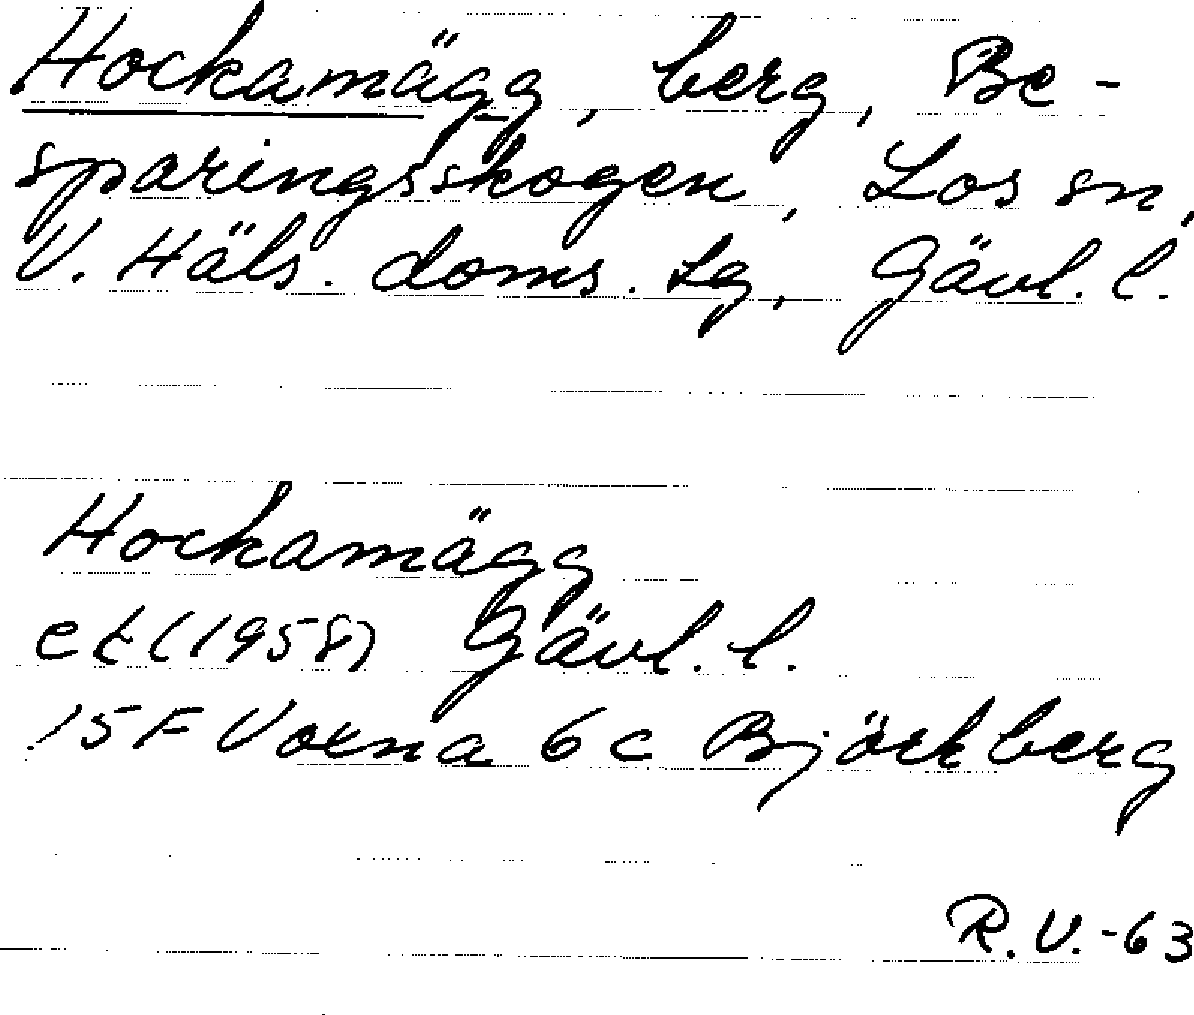 Hockamägg, berg, Be-
sparingsskogen, Los sn,
V. Häls. doms. lg, Gävl. l.
Hockamägg
ek (1958) Gävl. l.
15 F Voxna 6c Björkberg
R.V.-63